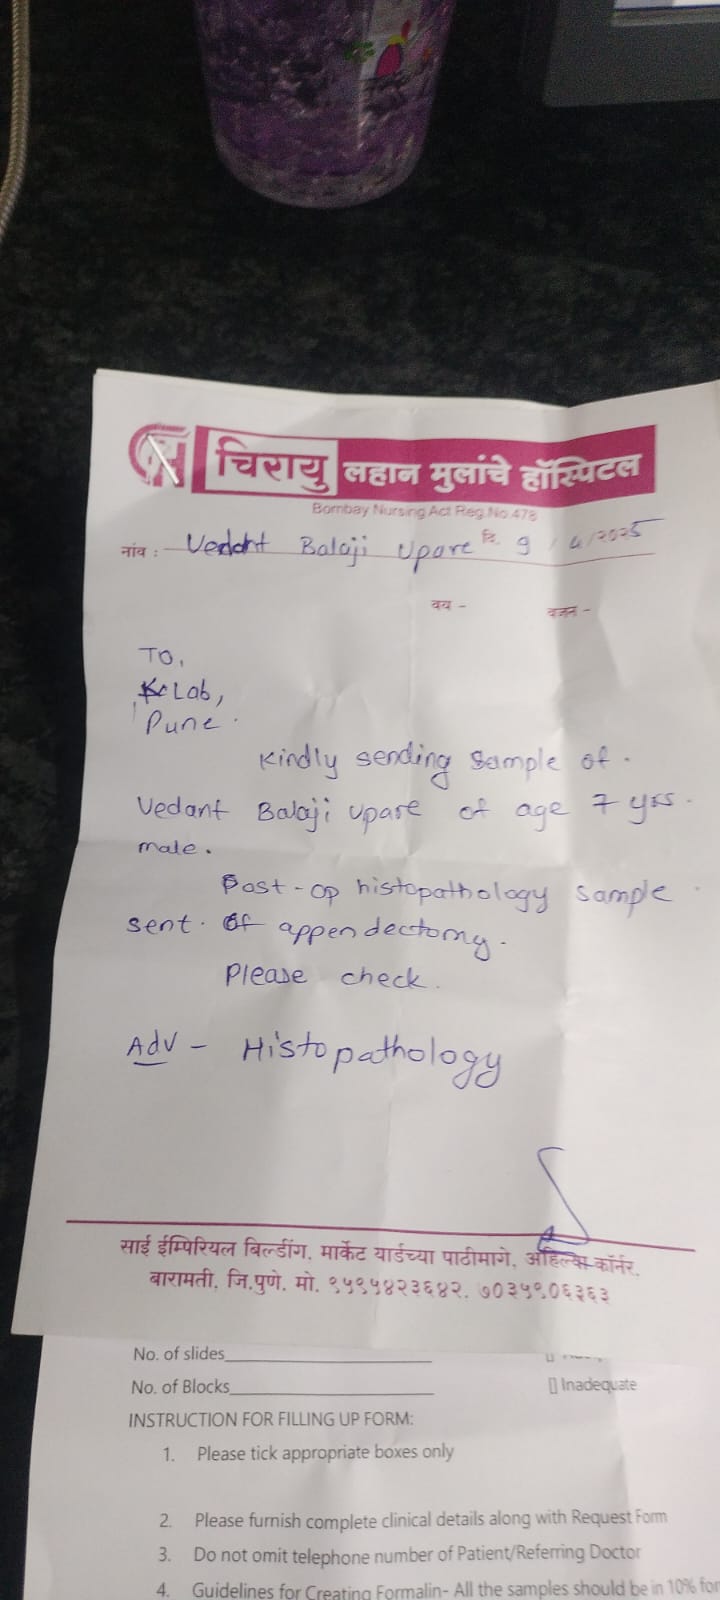 चिरायु लहान मुलांचे हॉस्पिटल
Bombay Nursing Act Reg.No.478
नांव : Vedant Balaji Upare दि. 9 / 4 /2025
वय - वजन -
To,
Lab,
Pune.
Kindly sending Sample of.
Vedant Balaji Upare of age 7 yrs.
male.
Post-op histopathology sample
sent. of appendectomy.
Please check.
Adv - Histopathology
साई ईम्पिरियल बिल्डींग, मार्केट यार्डच्या पाठीमागे, अहिल्या कॉर्नर,
बारामती, जि.पुणे. मो. ९५९५४२३६४२, ७०३५९०६३६३
No. of slides
No. of Blocks [] Inadequate
INSTRUCTION FOR FILLING UP FORM:
1. Please tick appropriate boxes only
2. Please furnish complete clinical details along with Request Form
3. Do not omit telephone number of Patient/Referring Doctor
4. Guidelines for Creating Formalin- All the samples should be in 10% for